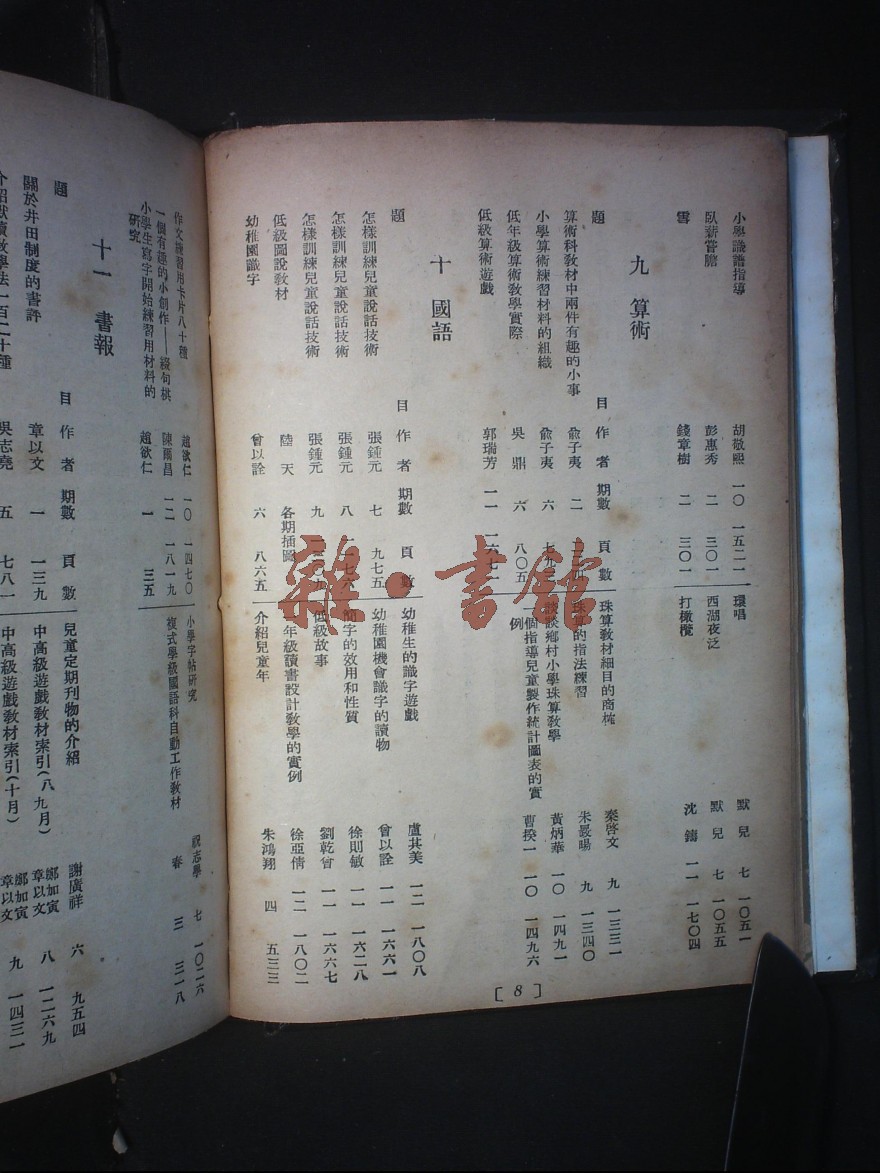 小學識譜指導 胡敬熙 一〇 一五二一
臥薪嘗膽 彭惠秀 二 三〇一
雪 錢章樹 二 三〇一
環唱 默兒 七 一〇五一
西湖夜泛 默兒 七 一〇五五
打橄欖 沈鑄 一一 一七〇四
九 算術
題 目 作者 期數 頁數
算術科教材中兩件有趣的小事 俞子夷 二
小學算術練習材料的組織 俞子夷 六 七九三
低年級算術教學實際 吳鼎 六 八〇五
低級算術遊戲 郭瑞芳 一一 一六七一
珠算教材細目的商榷 秦啓文 九 一三三一
珠算的指法練習 朱晸暘 九 一三四〇
談談鄉村小學珠算教學 黃炳華 一〇 一四九一
一個指導兒童製作統計圖表的實
例 曹揆一 一〇 一四九六
十 國語
題 目 作者 期數 頁數
怎樣訓練兒童說話技術 張鍾元 七 九七五
怎樣訓練兒童說話技術 張鍾元 八 一一七六
怎樣訓練兒童說話技術 張鍾元 九
低級圖說教材 陸天 各期插圖
幼稚園識字 曾以詮 六 八六五
幼稚生的識字遊戲 盧其美 一二 一八〇八
幼稚園機會識字的讀物 曾以詮 一一 一六六一
簡字的效用和性質 徐則敏 一一 一六二八
低級故事 劉乾曾 一一 一六六七
一年級讀書設計教學的實例 徐亞倩 一二 一八〇二
介紹兒童年 朱鴻翔 四 五三三
[8]
雜·書館
作文練習用卡片八十種 趙欲仁 一〇 一四七〇
一個有趣的小創作——綴句棋 陳爾昌 一二 一八一九
小學生寫字開始練習用材料的
研究 趙欲仁 一 三五
小學字帖研究 祝志學 七 一〇二六
複式學級國語科自動工作教材 春 三 三一八
十一 書報
題 目 作者 期數 頁數
關於井田制度的書評 章以文 一 一三九
介紹默讀教學法一百二十種 吳志堯 五 七八一
兒童定期刊物的介紹 謝廣祥 六 九五四
中高級遊戲教材索引(八九月) 鄔加寅 章以文 八 一二六九
中高級遊戲教材索引(十月) 鄔加寅 章以文 九 一四三一